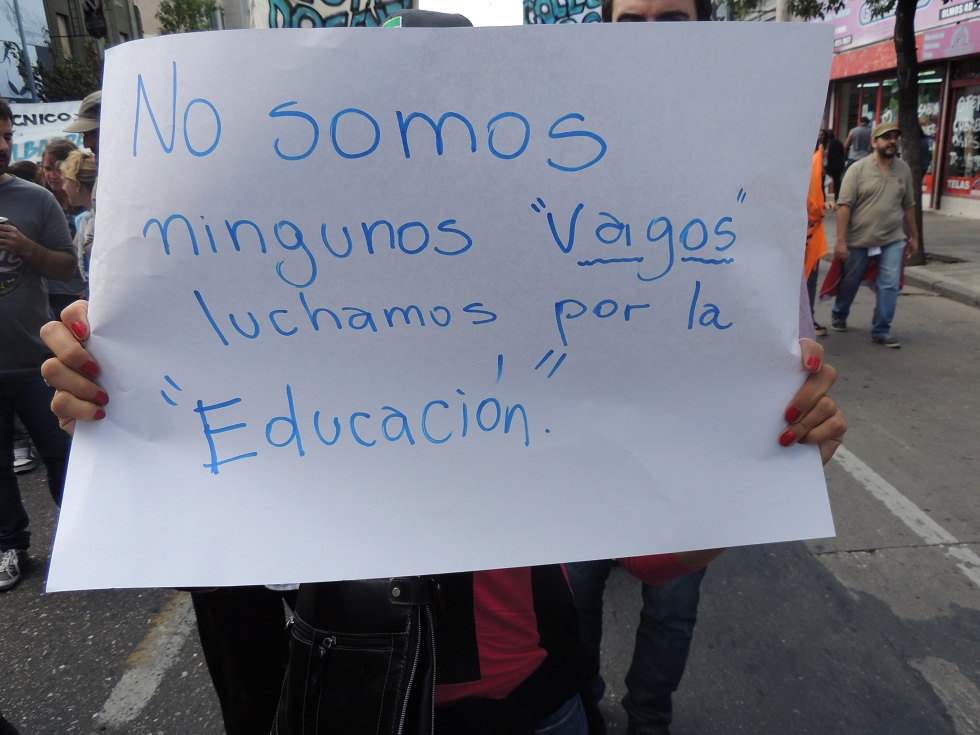 No somos
ningunos "Vagos"
luchamos por la
"Educación".
CNICO
TELAS